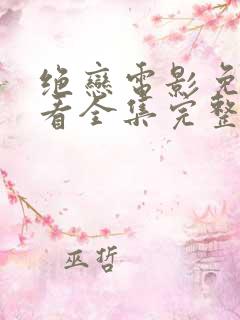 绝恋电影免
看全集完整
巫哲